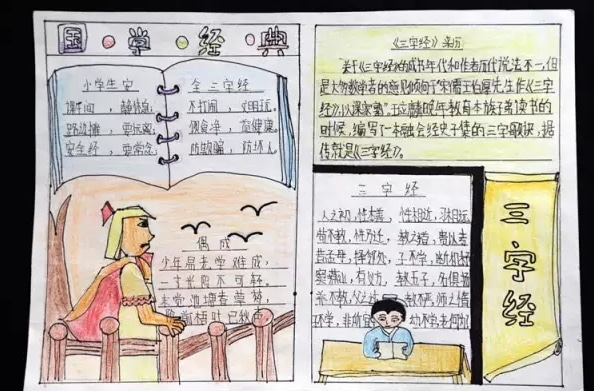 国学经典
小学生安全三字经
课中间，静休息，
不打闹，文明玩。
路边摊，要远离，
保食净，益健康。
安全经，要常念，
防欺骗，防坏人。
偶成
少年易老学难成，
一寸光阴不可轻。
未觉池塘春草梦，
阶前梧叶已秋声
《三字经》来历
关于《三字经》的成书年代和作者历代说法不一，但
是大多数学者的意见倾向于"宋儒王伯厚先生作《三字
经》，以课家塾"。王应麟晚年教育本族子弟读书的
时候，编写了一本融会经史子集的三字歌诀，据
传就是《三字经》。
三字经
人之初，性本善，性相近，习相远，
苟不教，性乃迁，教之道，贵以专
昔孟母，择邻处，子不学，断机杼
窦燕山，有义方，教五子，名俱扬
养不教，父之过，教不严，师之惰
子不学，非所宜，幼不学，老何为
三字经